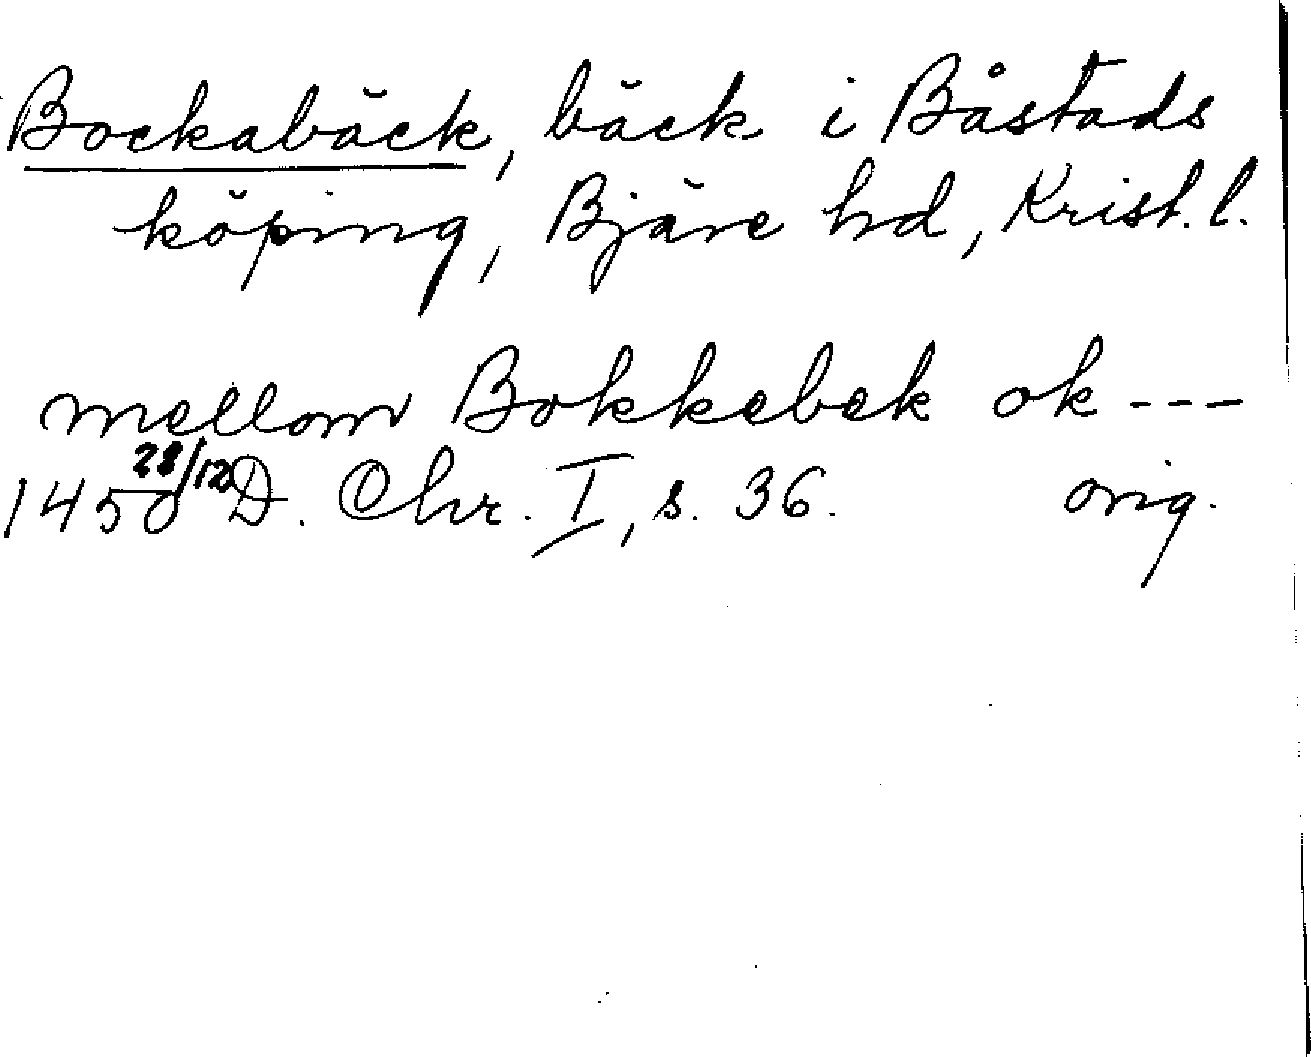 Bockabäck, bäck i Båstads
köping, Bjäre hd, Krist. l.
mellom Bokkebek ok ---
1450 28/12 D. Chr. I, s. 36. orig.